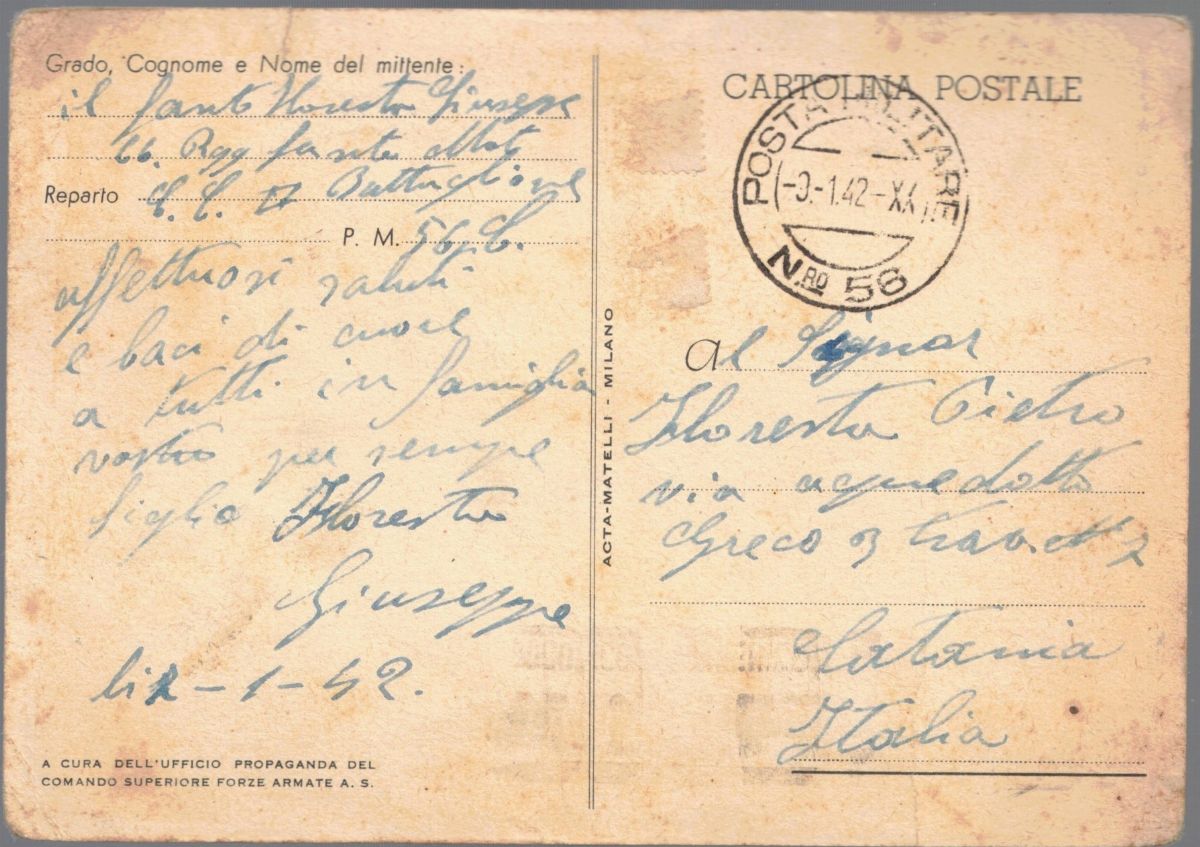 Grado, Cognome e Nome del mittente:
il fante Floresta Giuseppe
66. Regg fante Mot
Reparto C. C. II Battaglione
P. M. 56 C.
affettuosi saluti
e baci di cuore
a tutti in famiglia
vostro per sempre
figlio Floresta
Giuseppe
li 2-1-42.
A CURA DELL'UFFICIO PROPAGANDA DEL
COMANDO SUPERIORE FORZE ARMATE A. S.
ACTA-MATELLI - MILANO
CARTOLINA POSTALE
POSTA MILITARE
-1.42-XX
N.RO 56
Al Signor
Floresta Pietro
via aquedotto
Greco 3 trav. N 2
Catania
Italia